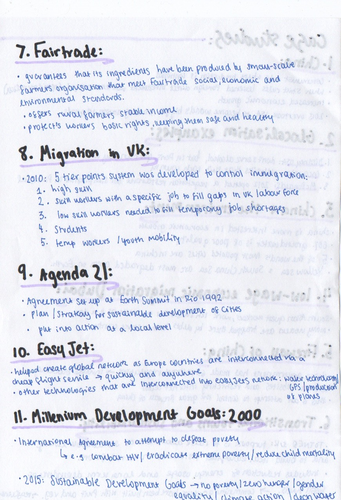 7. Fairtrade:
• guarantees that its ingredients have been produced by small-scale
farmers organisation that meet Fairtrade social, economic and
environmental standards.
• offers rural farmers stable income
• protects workers basic rights, keeping them safe and healthy
8. Migration in UK:
• 2010: 5 tier points system was developed to control immigration:
1. high skill
2. skill workers with a specific job to fill gaps in UK labour force
3. low skill workers needed to fill temporary job shortages
4. Students
5. temp workers / youth mobility
9. Agenda 21:
• Agreement set up at Earth Summit in Rio 1992
• plan / strategy for sustainable development of cities
• put into action at a local level
10. EasyJet:
• helped create global network as Europe countries are interconnected via a
cheap flight service → quickly and anywhere
• other technologies that are interconnected into easyJets network: water technology/
GPS/production
of planes
11. Millenium Development Goals: 2000
• International agreement to attempt to defeat poverty
↳ e.g. combat HIV/eradicate extreme poverty/reduce child mortality
• 2015: Sustainable Development Goals → no poverty/zero hunger/gender
equality/climate action/